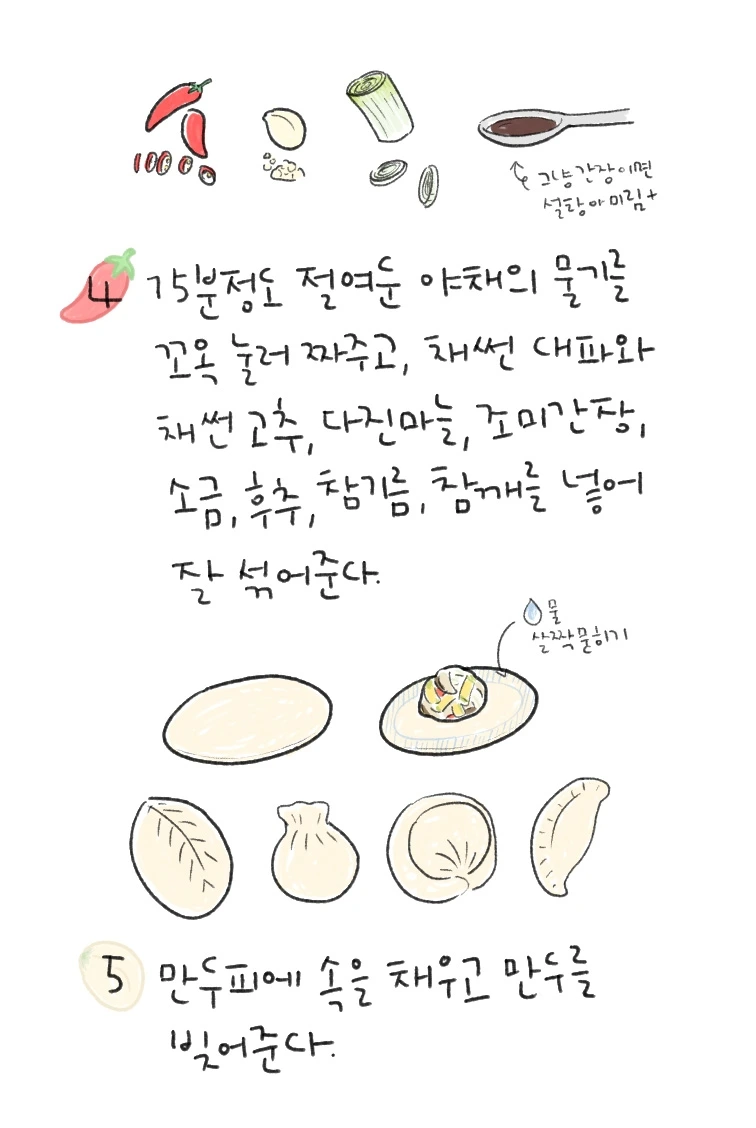 그냥 간장이면
설탕이나 미림+
4 15분정도 절여둔 야채의 물기를
꼬옥 눌러 짜주고, 채썬 대파와
채썬 고추, 다진마늘, 조미간장,
소금, 후추, 참기름, 참깨를 넣어
잘 섞어준다.
물
살짝 묻히기
5 만두피에 속을 채우고 만두를
빚어준다.